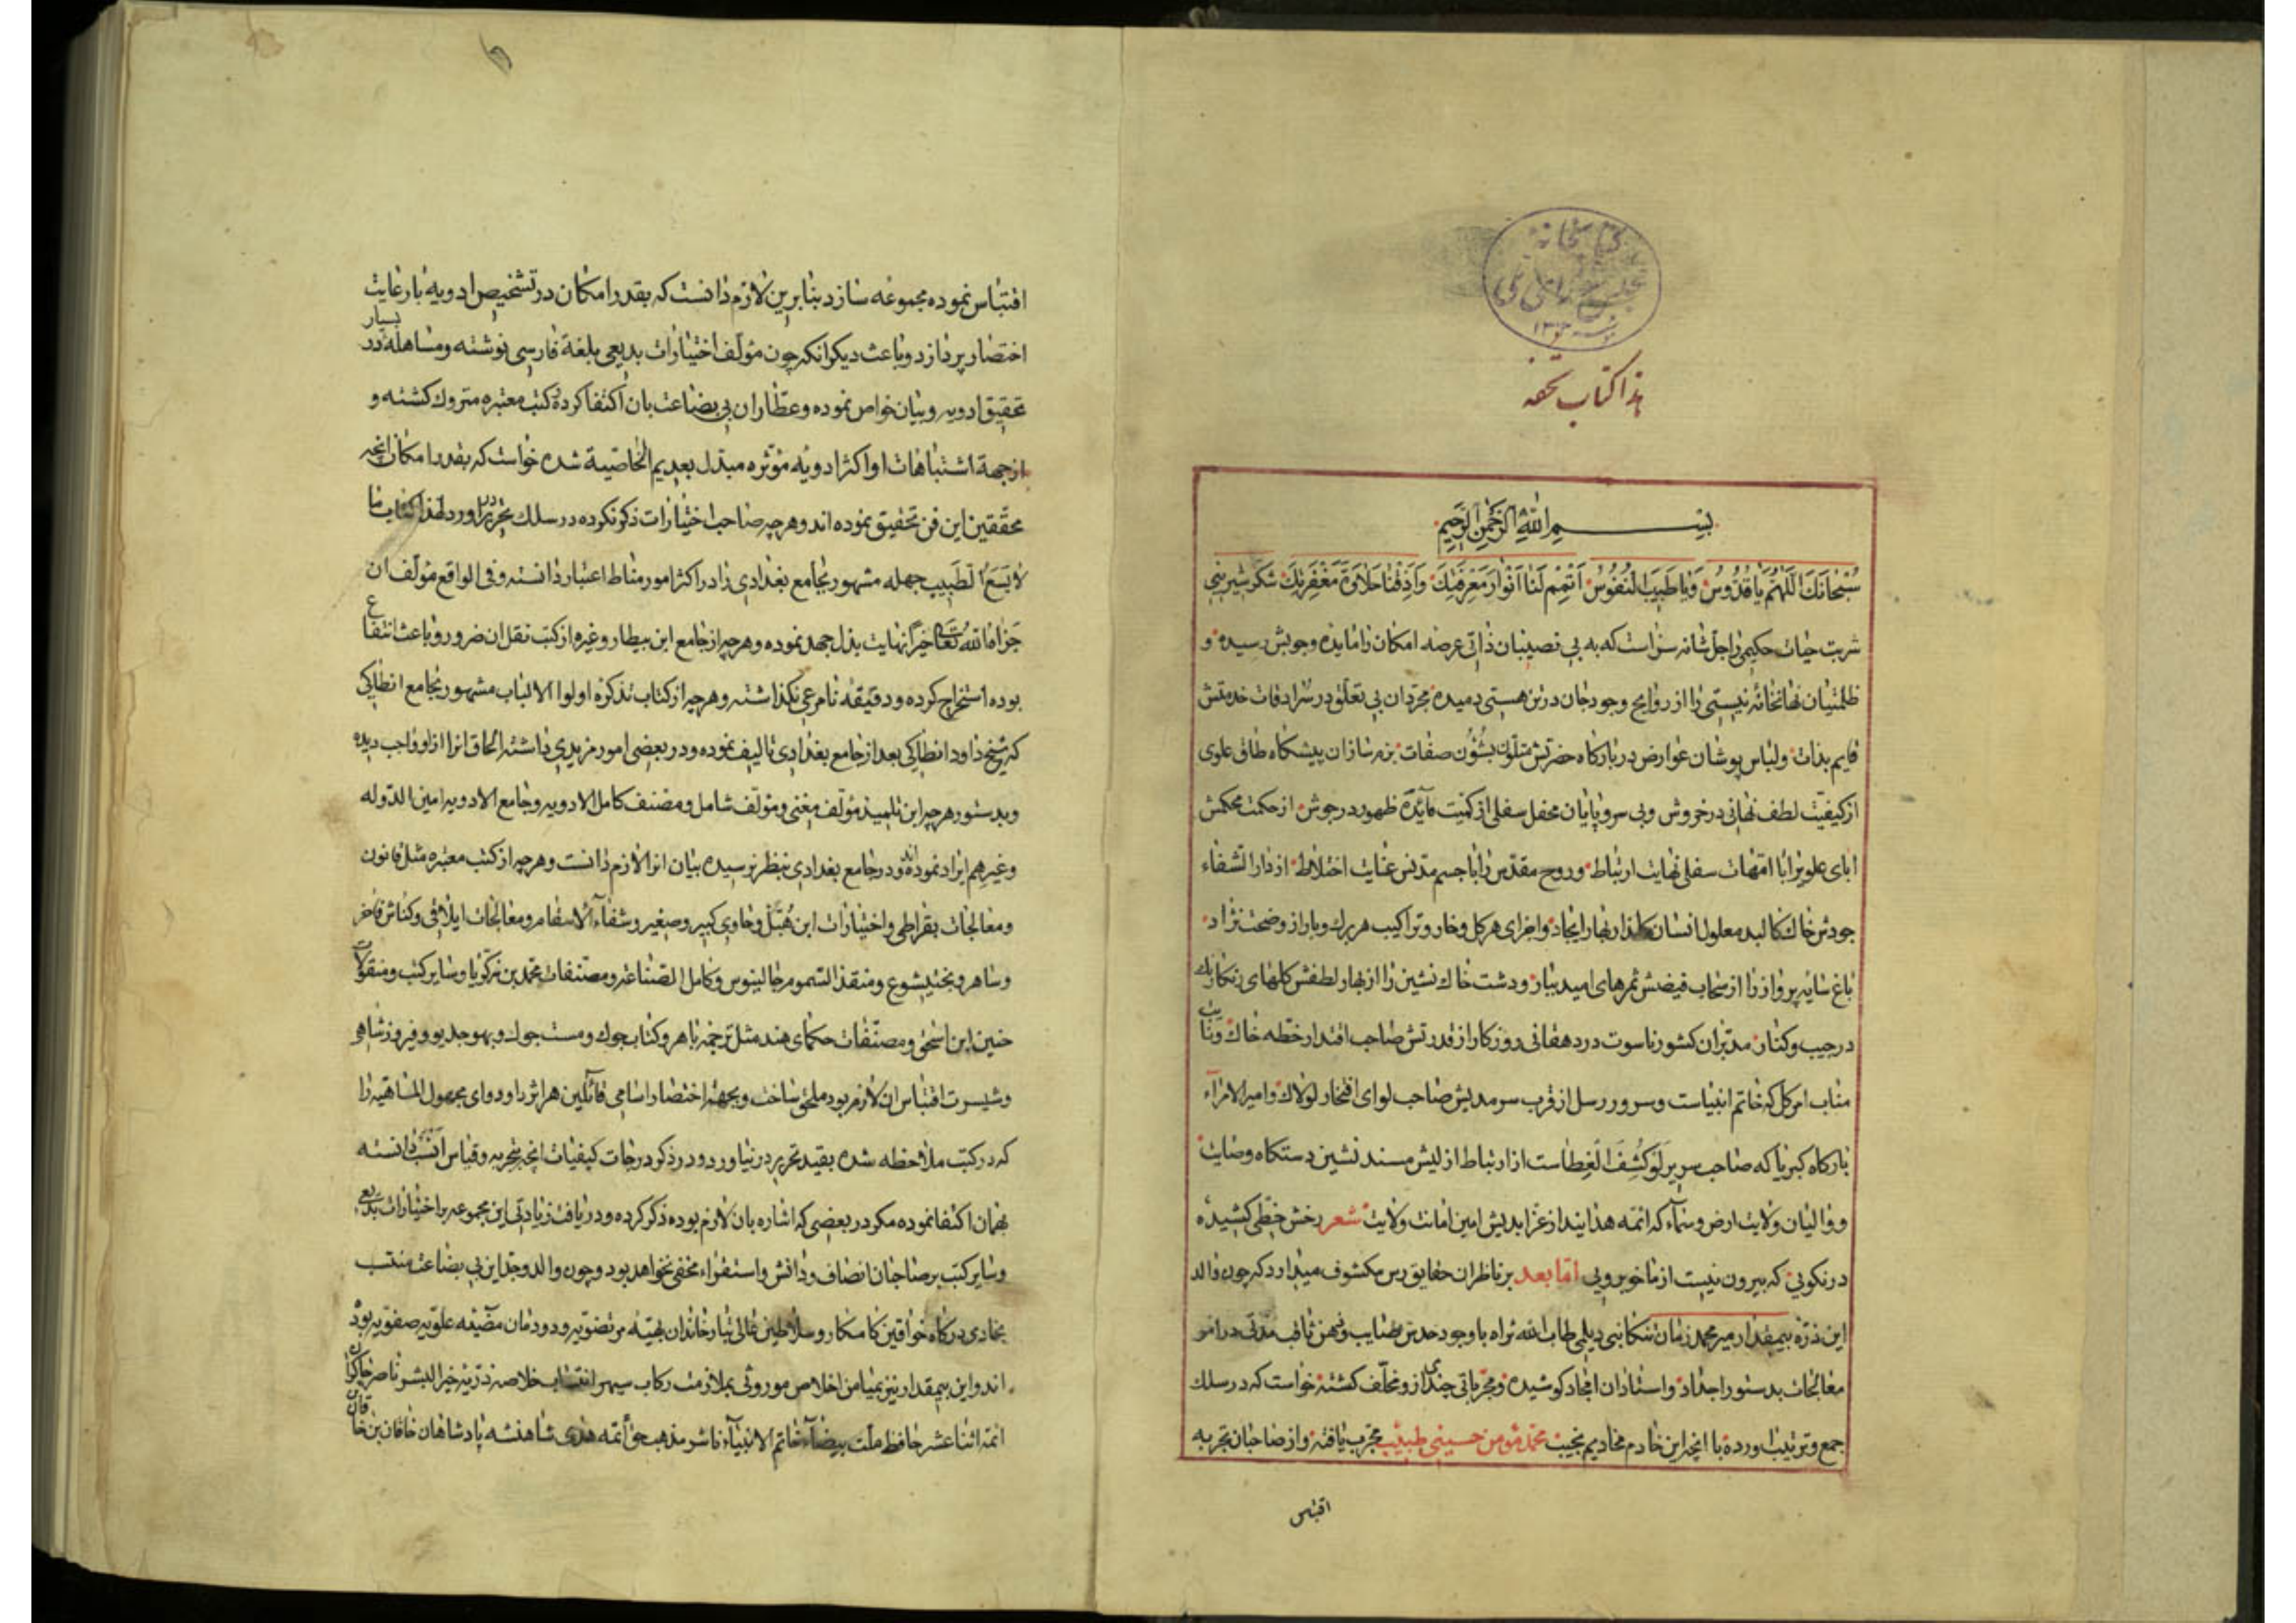 کتابخانه
مجلس شورای ملی
۱۳۰۲
هذا کتاب تحفه
بسم الله الرحمن الرحیم
سُبْحانَکَ اللّهُمَّ یا قُدُّوسُ وَیا طَبیبَ النُّفُوسْ اَتْمِمْ لَنا اَنْوارَ مَعْرِفَتِکَ وَاَذِقْنا حَلاوَةَ مَغْفِرَتِکَ شکر شیرینی
شربت حیات حکیمی را جلّ شانه سزاست که به بی نصیبان ذاتی عرصه امکان را مایده وجوبش رسیده و
ظلمتیان نهانخانه نیستی را از روایح وجود جان در تن هستی دمیده مجردان بی تعلق در سرادقات خدمتش
قایم بذات ولباس پوشان عوارض در بارکاه حضرتش متلون بشؤن صفات بزم سازان پیشکاه طاق علوی
از کیفیت لطف نهانی در خروش وبی سر وپایان محفل سفلی از کمیت مآئده ظهور در جوش از حکمت محکمش
ابای علویرا با امهات سفلی نهایت ارتباط وروح مقدس را با جسم مدنس غایت اختلاط از دار الشفاء
جودش خاک کالبد معلول انسان بهار ایجاد واجزای هر کل وخار وتراکیب هر برک وبار از وضحت نژاد
باغ سایه پرواز را از سحاب فیضش ثمرهای امید ببار ودشت خاک نشین را از بهار لطفش کلهای رنکارنک
در جیب وکنار مدبران کشور ناسوت در دهقانی روزکار از قدرتش صاحب اقتدار خطه خاک ونایب
مناب امر کل که خاتم انبیاست وسرور رسل از قرب سرمدیش صاحب لوای افتخار لولاک وامیر الامرآء
بارکاه کبریا که صاحب سریر لَوْ کُشِفَ الْغِطاست از ارتباط ازلیش مسند نشین دستکاه وصایت
ووالیان ولایت ارض وسمآء که ائمه هدایند از عز ابدیش امین امانت ولایت شعر رخش خطی کشیده
در نکویی که بیرون نیست از ما خوبرویی اما بعد بر ناظران حقایق رس مکشوف میدارد که چون والد
این ذره بیمقدار میر محمد زمان تنکابنی دیلمی طاب الله ثراه با وجود حدس صایب وذهن ثاقب مدتی در امر
معالجات بدستور اجداد واستادان امجاد کوشیده ومجرباتی چند از او مخلف کشته خواست که در سلک
جمع وترتیب اورده با انچه این خادم مخادیم نجیب محمد مؤمن حسینی طبیب مجرب یافته واز صاحبان تجربه
اقتباس
اقتباس نموده مجموعه سازد بنا برین لازم دانست که بقدر امکان در تشخیص ادویه با رعایت
اختصار پردازد وباعث دیکر انکه چون مؤلف اختیارات بدیعی بلغة فارسی نوشته ومساهله بسیار در
تحقیق ادویه وبیان خواص نموده وعطاران بی بضاعت بان اکتفا کرده کتب معتبره متروک کشته و
از جهة اشتباهات او اکثر ادویه مؤثره مبدل بعدیم الخاصیة شده خواست که بقدر امکان انچه
محققین این فن تحقیق نموده اند وهر چه صاحب اختیارات ذکر نکرده در سلک تحریر در اورد لهذا کتاب ما
لا یَسَعُ الطبیب جهله مشهور بجامع بغدادی را در اکثر امور مناط اعتبار دانسته وفی الواقع مؤلف ان
جزاه الله تعالی خیراً نهایت بذل جهد نموده وهر چه از جامع ابن بیطار وغیره از کتب نقل ان ضرور وباعث انتفاع
بوده استخراج کرده ودقیقه نامرعی نکذاشته وهر چه از کتاب تذکره اولوا الالباب مشهور بجامع انطاکی
که شیخ داود انطاکی بعد از جامع بغدادی تالیف نموده ودر بعضی امور مزیدی داشته الحاق انرا از او واجب دیده
وبدستور هر چه ابن تلمیذ مؤلف مغنی ومؤلف شامل ومصنف کامل الادویه وجامع الادویه امین الدوله
وغیرهم ایراد نموده اند ودر جامع بغدادی بنظر نرسیده بیان انرا لازم دانست وهر چه از کتب معتبره مثل قانون
ومعالجات بقراطی واختیارات ابن هُبَل وحاوی کبیر وصغیر وشفآء الاسقام ومعالجات ایلاقی وکناش فاخر
وساهر وبختیشوع ومنقذ السموم جالینوس وکامل الصناعه ومصنفات محمد بن زکریا وسایر کتب ومنقولات
حنین ابن اسحق ومصنفات حکمای هند مثل ترجمه باهر وکتاب جوک ومست جوک وبهوجدیو وفیروز شاهی
وشیسرت اقتباس ان لازم بود ملحق ساخت وبجهة اختصار اسامی قائلین هر اثر را ودوای مجهول الماهیه را
که در کتب ملاحظه شده بقید تحریر در نیاورد ودر ذکر درجات کیفیات انچه بتجربه وقیاس انسب دانسته
بهمان اکتفا نموده مکر در بعضی که اشاره بان لازم بوده ذکر کرده ودریافت زیادتی این مجموعه بر اختیارات بدیعی
وسایر کتب بر صاحبان انصاف ودانش واستقراء مخفی نخواهد بود وچون والد وجد این بی بضاعت منتسب
بخادمی درکاه خواقین کامکار وسلاطین عالی تبار خاندان بهیه مرتضویه ودودمان مضیئه علویه صفویه بوده
اند واین بیمقدار نیز بمیامن اخلاص موروثی بملازمت رکاب سپهر انتساب خلاصه ذریه خیر البشر ناصر چاکران
ائمه اثنا عشر حافظ ملت بیضآء خاتم الانبیآء ناشر مذهب حق أئمه هدی شاهنشه پادشاهان خاقان بن خاقان